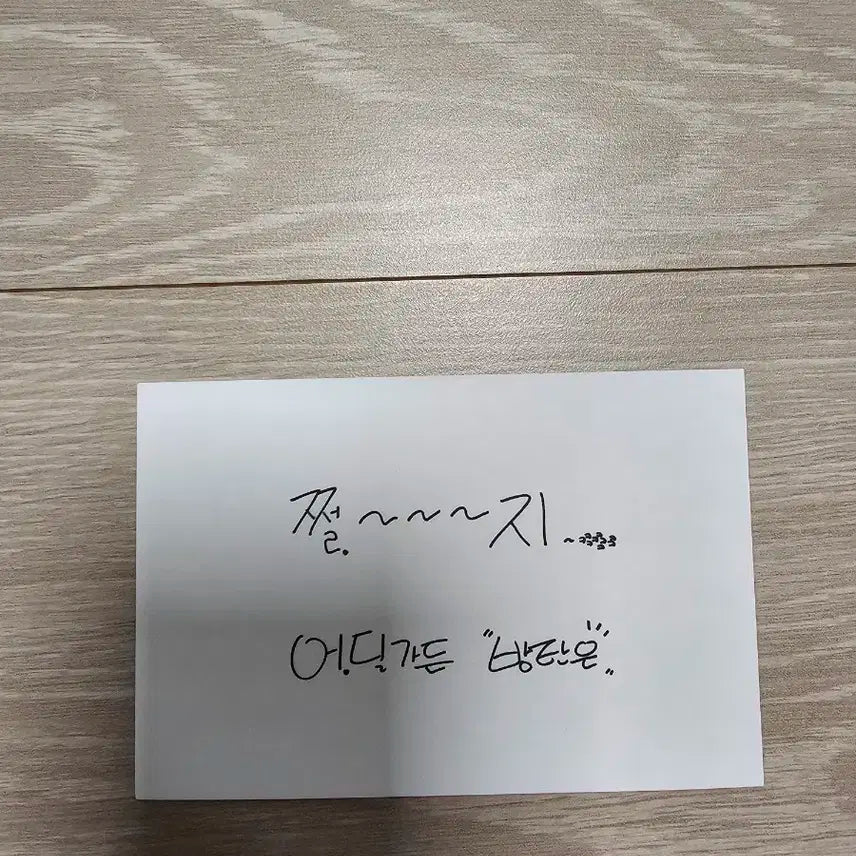 쩔.~~~지..~ㅋㅋㅋㅋㅋ
어.딜가든 "방탄은"..